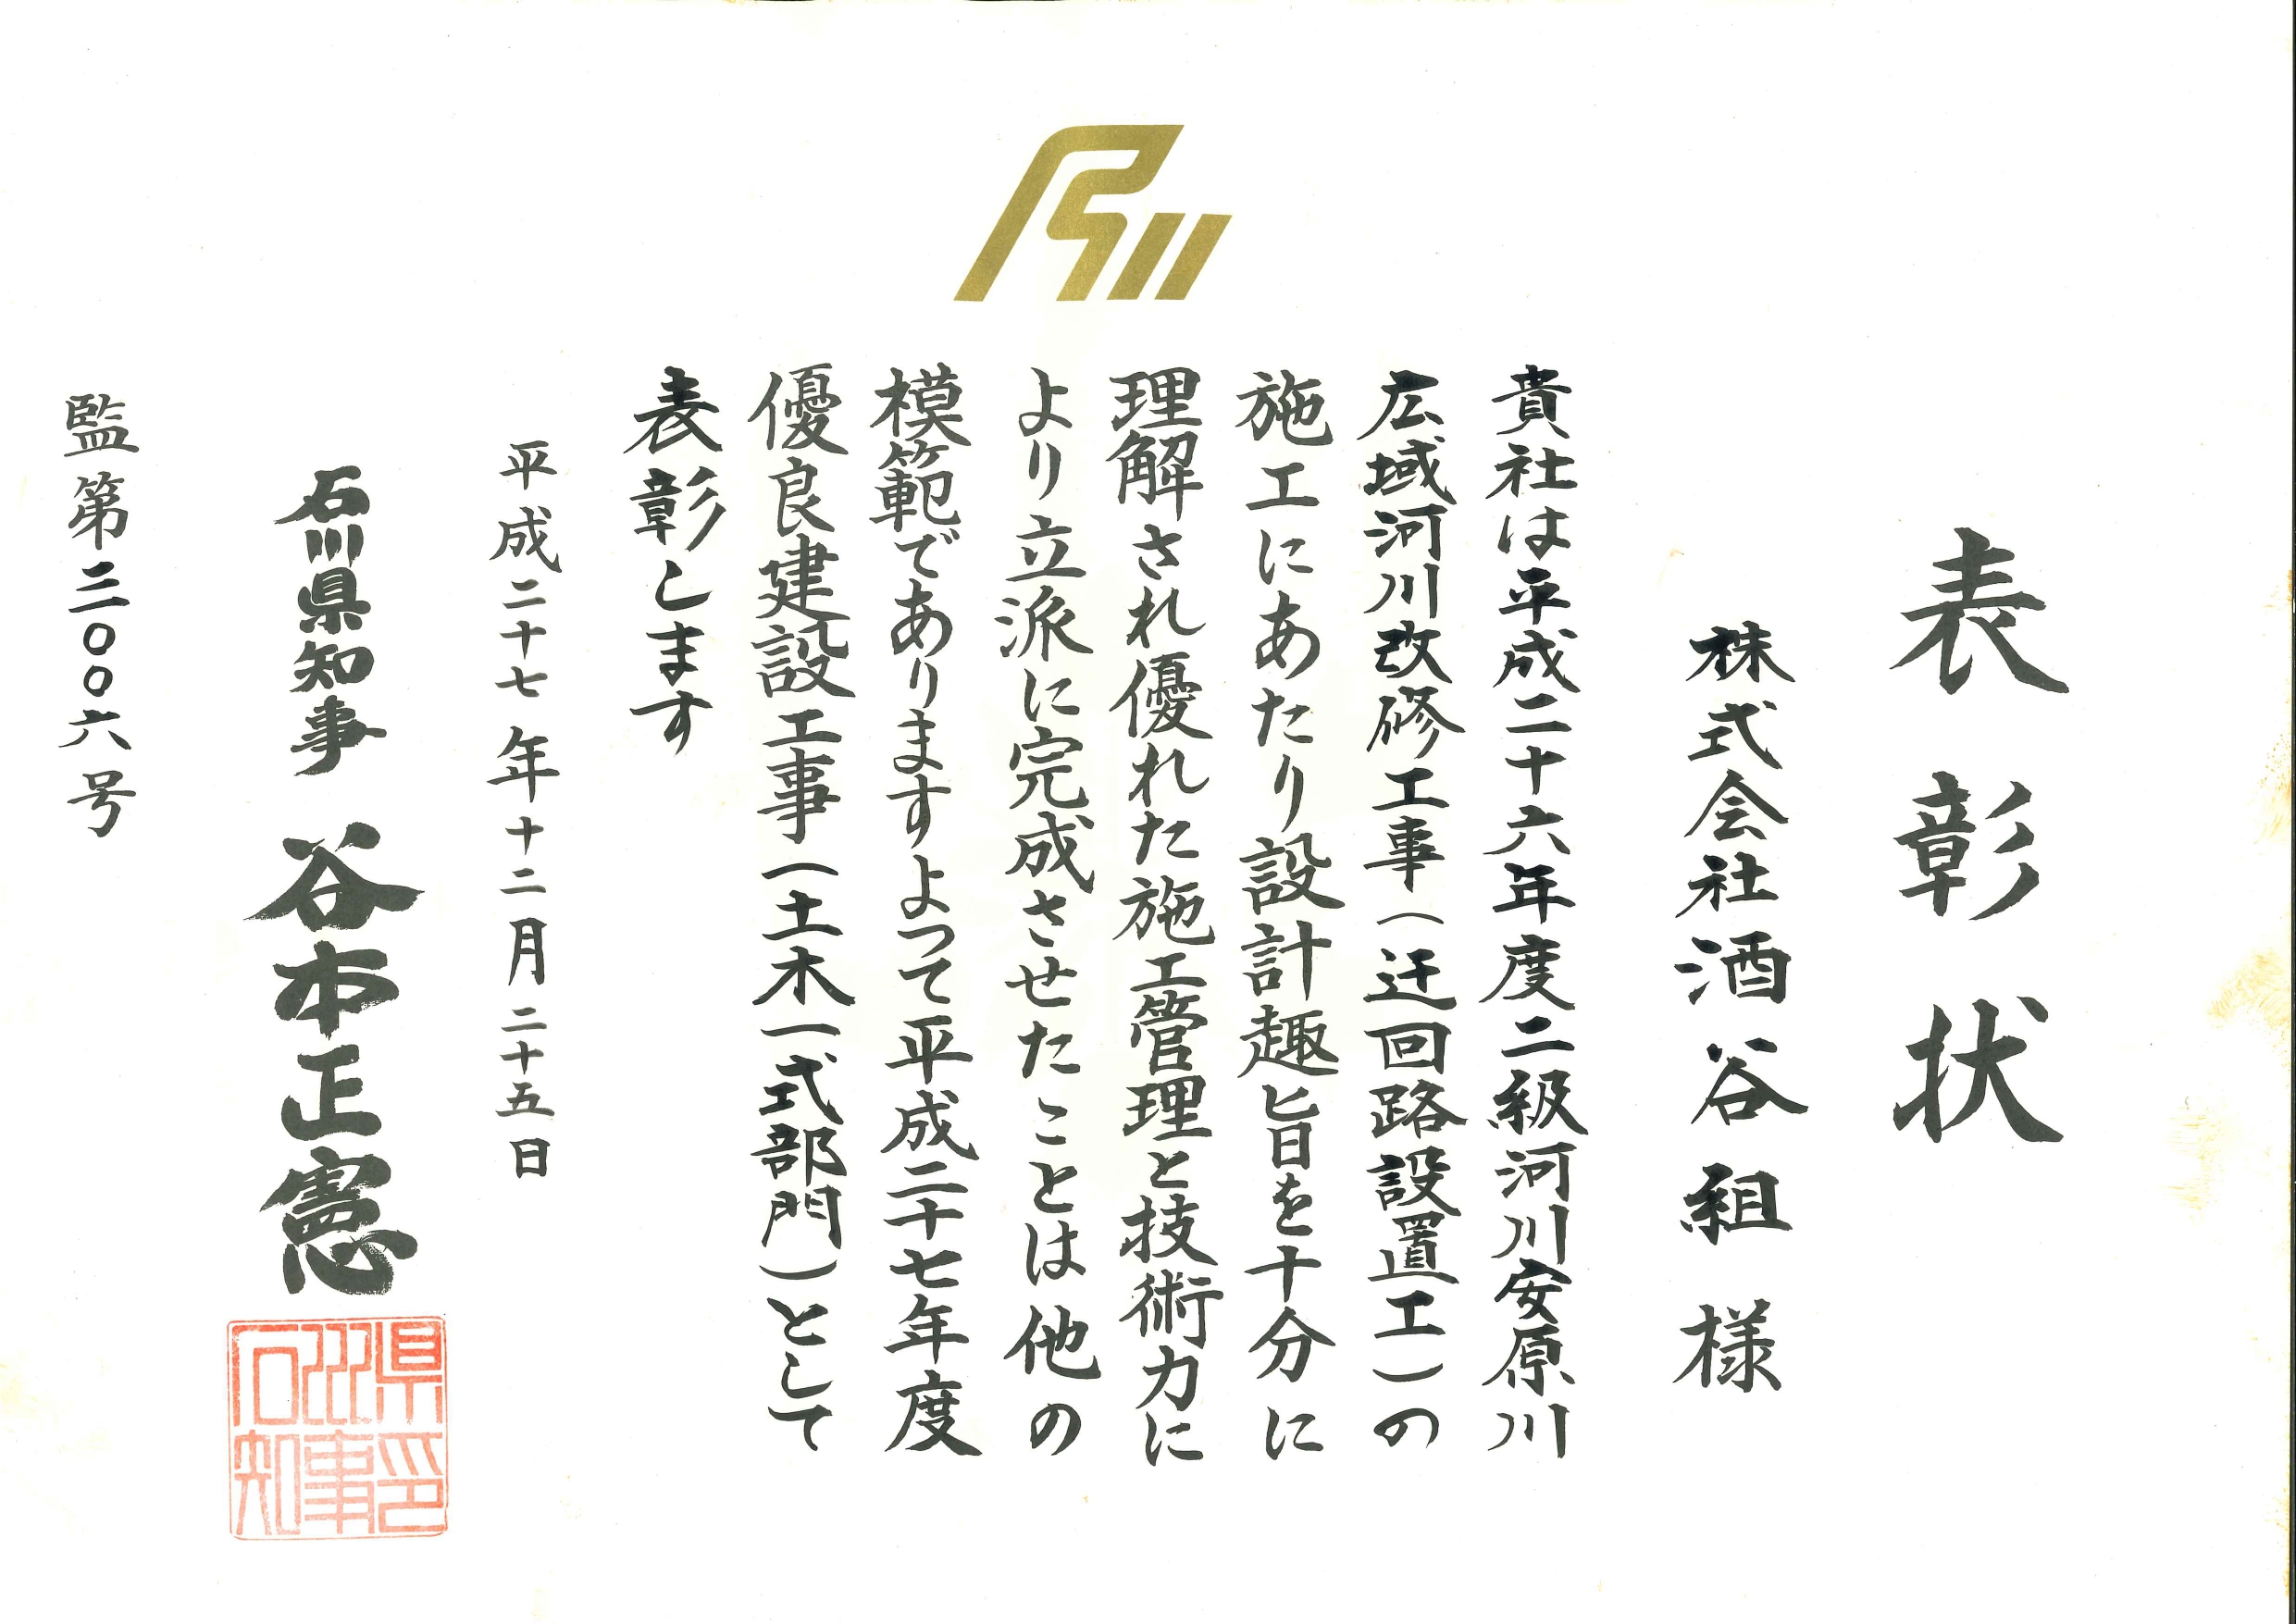 表彰状
株式会社酒谷組様
貴社は平成二十六年度二級河川安原川
広域河川改修工事(迂回路設置工)の
施工にあたり設計趣旨を十分に
理解され優れた施工管理と技術力に
より立派に完成させたことは他の
模範でありますよって平成二十七年度
優良建設工事(土木一式部門)として
表彰します
平成二十七年十二月二十五日
石川県知事 谷本正憲
石川県知事印
監第三〇〇六号